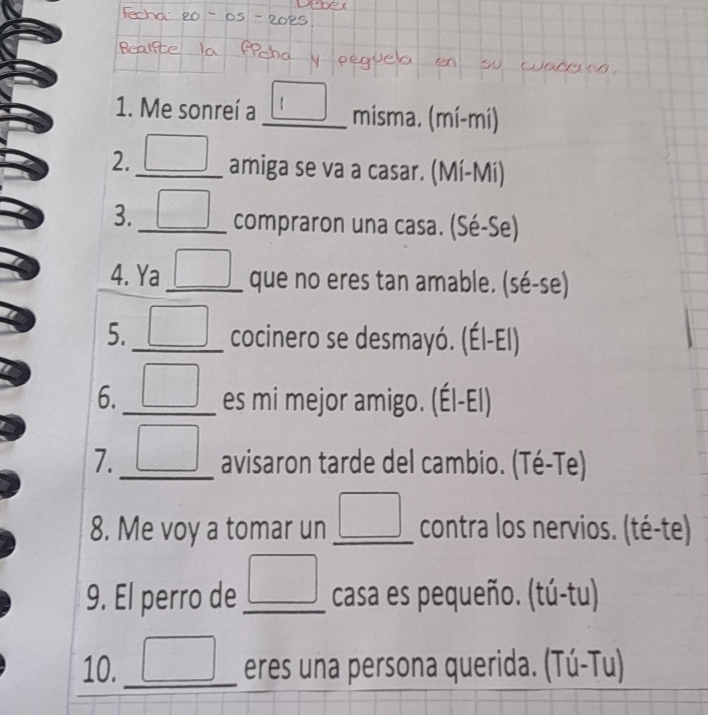 Deber
Fecha: 20-05-2025.
Realice la ficha y peguela en su
1. Me sonreí a misma. (mí-mi)
2. amiga se va a casar. (Mí-Mi)
3. compraron una casa. (Sé-Se)
4. Ya que no eres tan amable. (sé-se)
5. cocinero se desmayó. (Él-El)
6. es mi mejor amigo. (Él-El)
7. avisaron tarde del cambio. (Té-Te)
8. Me voy a tomar un contra los nervios. (té-te)
9. El perro de casa es pequeño. (tú-tu)
10. eres una persona querida. (Tú-Tu)